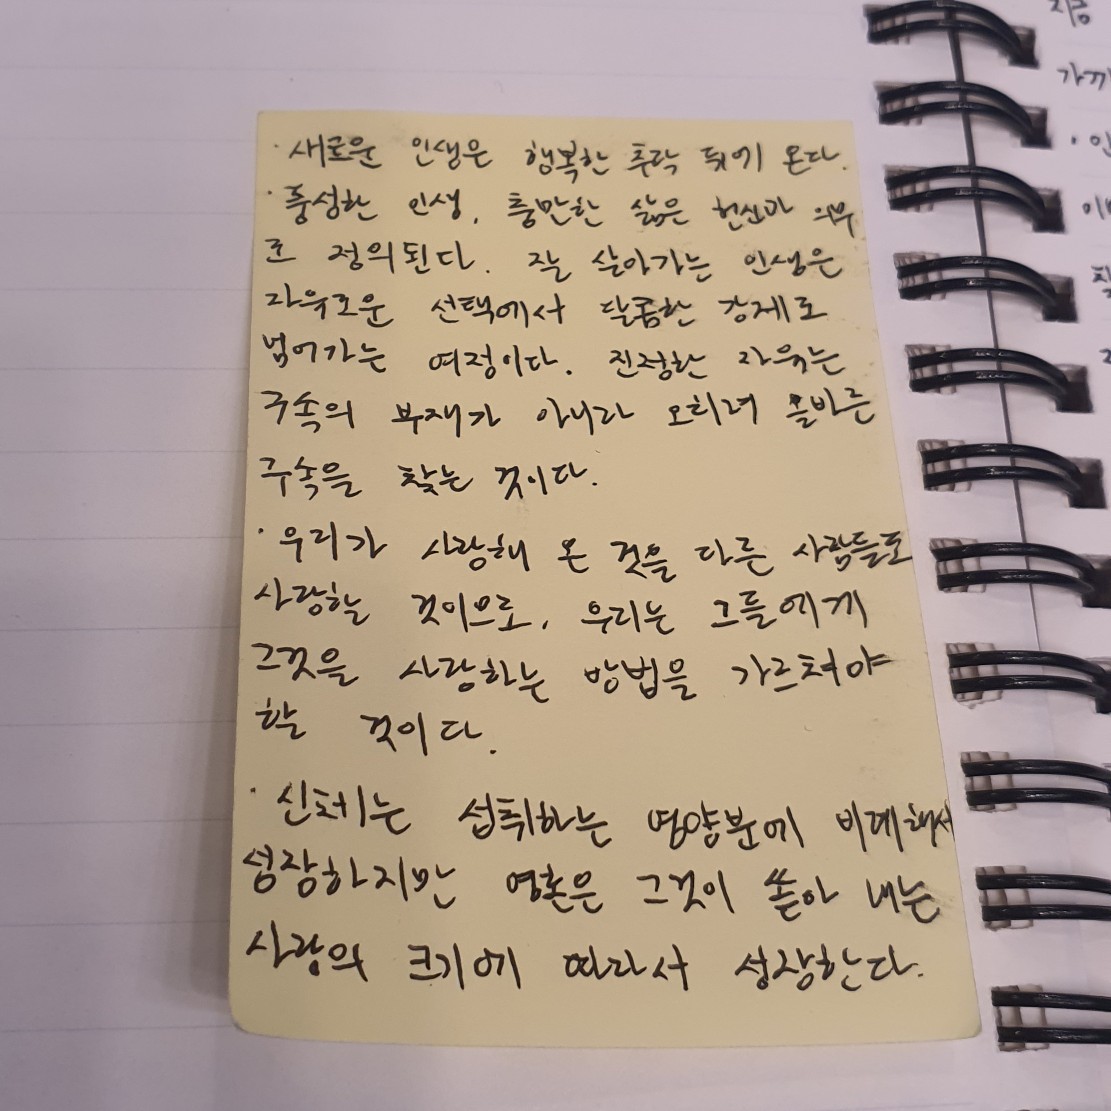 · 새로운 인생은 행복한 추락 뒤에 온다.
· 풍성한 인생, 충만한 삶은 헌신과 의무
로 정의된다. 잘 살아가는 인생은
자유로운 선택에서 달콤한 강제로
넘어가는 여정이다. 진정한 자유는
구속의 부재가 아니라 오히려 올바른
구속을 찾는 것이다.
· 우리가 사랑해 온 것을 다른 사람들도
사랑할 것이므로, 우리는 그들에게
그것을 사랑하는 방법을 가르쳐야
할 것이다.
· 신체는 섭취하는 영양분에 비례해서
성장하지만 영혼은 그것이 쏟아 내는
사랑의 크기에 따라서 성장한다.
지금